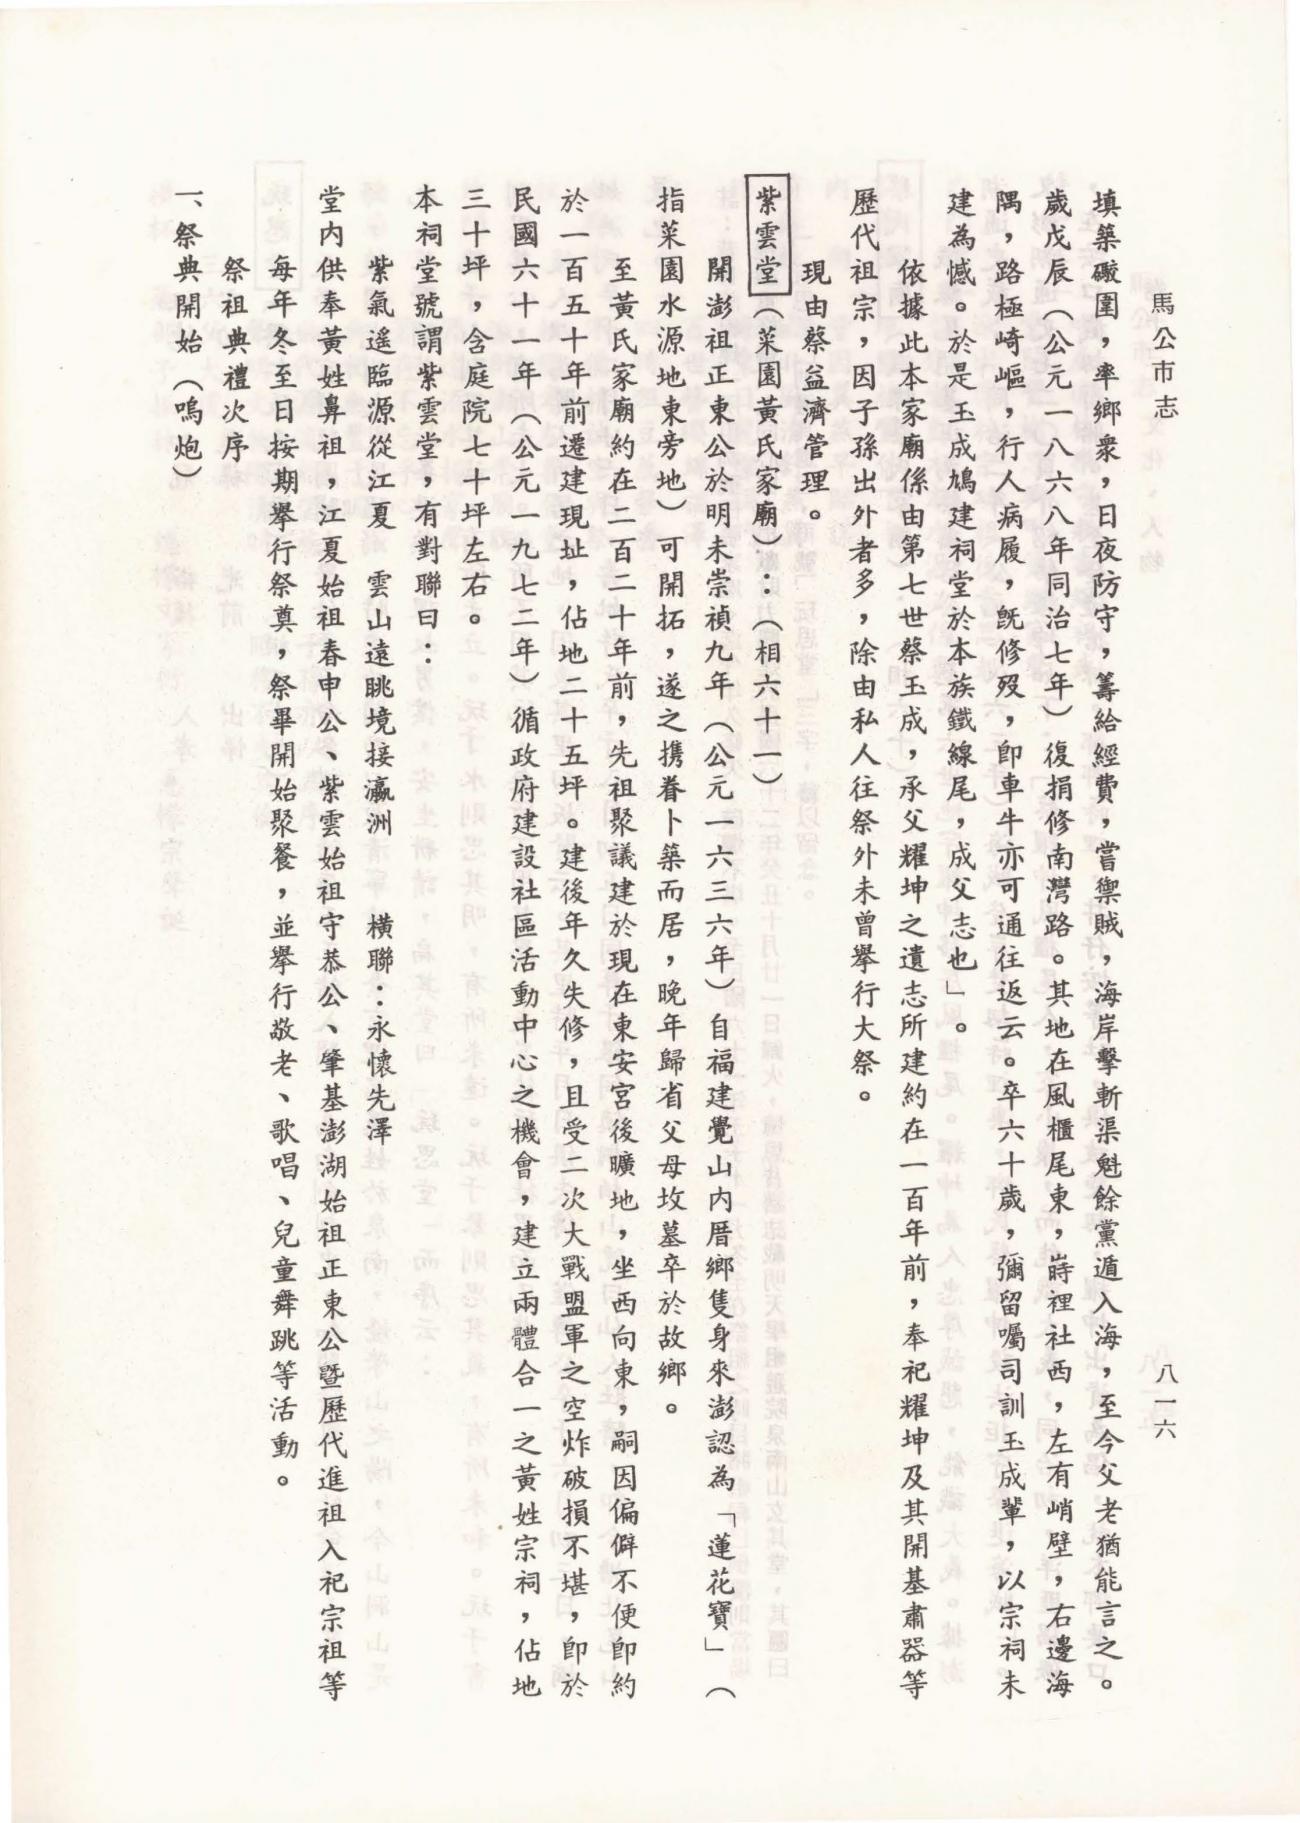 馬公市志
八一六
填築礮圍，率鄉衆，日夜防守，籌給經費，嘗禦賊，海岸擊斬渠魁餘黨遁入海，至今父老猶能言之。
歲戊辰（公元一八六八年同治七年）復捐修南灣路。其地在風櫃尾東，蒔裡社西，左有峭壁，右邊海
隅，路極崎嶇，行人病履，旣修歿，卽車牛亦可通往返云。卒六十歲，彌留囑司訓玉成輩，以宗祠未
建為憾。於是玉成鳩建祠堂於本族鐵線尾，成父志也」。
依據此本家廟係由第七世蔡玉成，承父耀坤之遺志所建約在一百年前，奉祀耀坤及其開基肅器等
歷代祖宗，因子孫出外者多，除由私人往祭外未曾舉行大祭。
現由蔡益濟管理。
紫雲堂（菜園黃氏家廟）：（相六十一）
開澎祖正東公於明末崇禎九年（公元一六三六年）自福建覺山內厝鄉隻身來澎認為「蓮花寶」（
指菜園水源地東旁地）可開拓，遂之携眷卜築而居，晚年歸省父母坟墓卒於故鄉。
至黃氏家廟約在二百二十年前，先祖聚議建於現在東安宮後曠地，坐西向東，嗣因偏僻不便卽約
於一百五十年前遷建現址，佔地二十五坪。建後年久失修，且受二次大戰盟軍之空炸破損不堪，卽於
民國六十一年（公元一九七二年）循政府建設社區活動中心之機會，建立兩體合一之黃姓宗祠，佔地
三十坪，含庭院七十坪左右。
本祠堂號謂紫雲堂，有對聯曰：
紫氣遙臨源從江夏　雲山遠眺境接瀛洲　橫聯：永懷先澤
堂內供奉黃姓鼻祖，江夏始祖春申公、紫雲始祖守恭公、肇基澎湖始祖正東公暨歷代進祖入祀宗祖等
每年冬至日按期舉行祭奠，祭畢開始聚餐，並舉行敬老、歌唱、兒童舞跳等活動。
祭祖典禮次序
一、祭典開始（鳴炮）